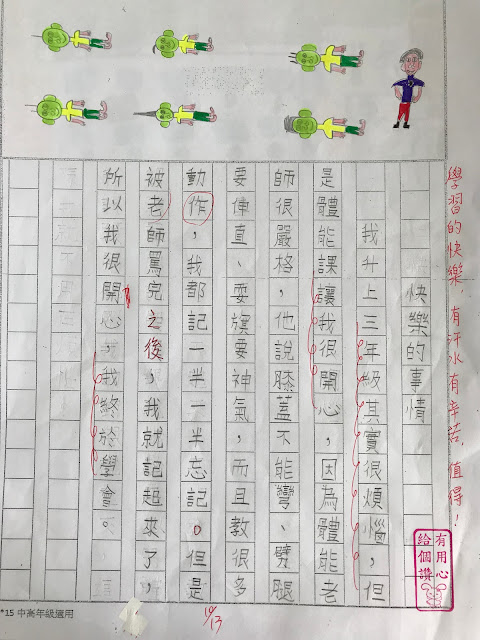 學習的快樂,有汗水有辛苦,值得!
快樂的事情
我升上三年級其實很煩惱,但
是體能課讓我很開心,因為體能老
師很嚴格,他說膝蓋不能彎、劈腿
要伸直、耍旗要神氣,而且教很多
動作,我都記一半一半忘記。但是
被老師罵完之後,我就記起來了,
所以我很開心,我終於學會。
有用心
給個讚
*15 中高年級適用